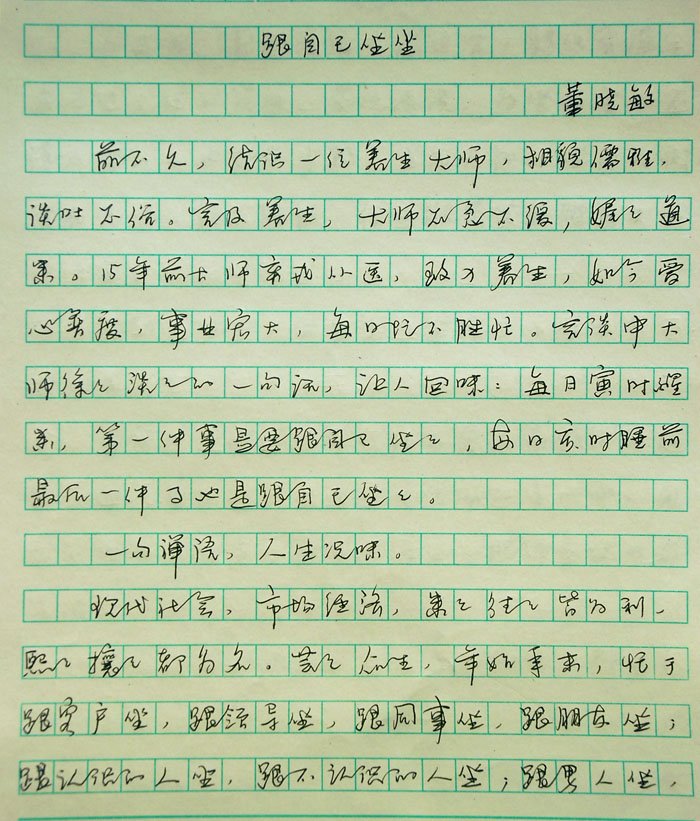 跟自己坐坐
董晓敏
前不久，结识一位养生大师，相貌儒雅，
谈吐不俗。言及养生，大师不急不缓，娓々道
来。15年前大师弃戎从医，致力养生，如今爱
心普度，事业宏大，每日忙不胜忙。言谈中大
师徐々淡々的一句话，让人回味：每日寅时醒
来，第一件事是要跟自己坐々，每日亥时睡前
最后一件事也是跟自己坐々。
一句禅语，人生况味。
现代社会，市场经济，来々往々皆为利，
熙々攘々都为名。芸々众生，年始年末，忙于
跟客户坐，跟领导坐，跟同事坐，跟朋友坐；
跟认识的人坐，跟不认识的人坐；跟男人坐，